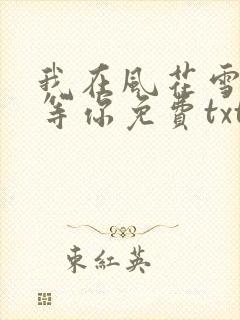 我在風花雪
等你免費txt
東紅英